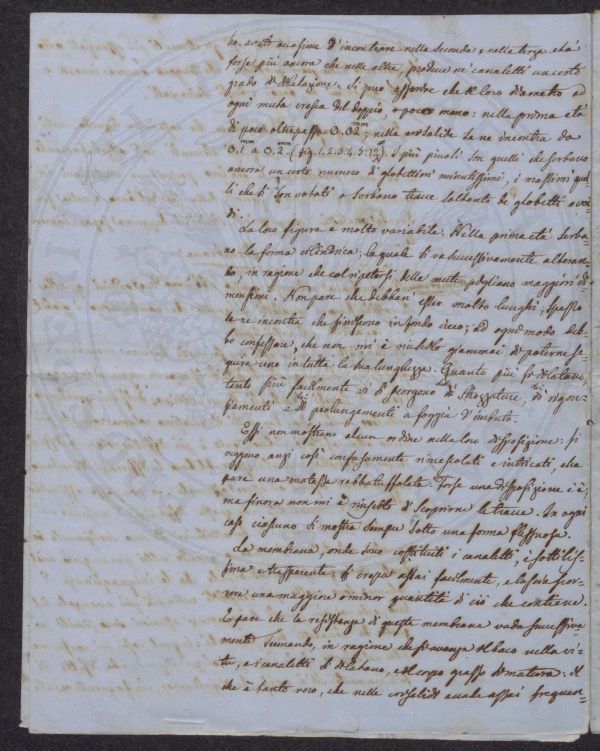 ho avuto occasione d'incontrare nella seconda e nella terza età
forse più ancora che nelle altre, produce ne' canaletti un certo
grado di dilatazione. Si può asserire che il loro diametro ad
ogni muta cresca del doppio, o poco meno: nella prima età
di poco oltrepassa 0,02mm; nella crisalide se ne incontra da
0,1mm a 0,2mm (fig. 1. 2. 3. 4. 5. 12). I più piccoli son quelli che serbano
ancora un certo numero di globettini minutissimi, i massimi quel-
li che si son votati o serbano tracce soltanto de' globetti ovoi-
di.
La loro figura è molto variabile. Nella prima età serba-
no la forma cilindrica; la quale si va successivamente alteran-
do, in ragione che col ripetersi delle mute pigliano maggiori di-
mensione. Non pare che debban' esser molto lunghi; spesso
se ne incontra che finiscono in fondo cieco; ad ogni modo deb-
bo confessare, che non mi è riuscito giammai di poterne se-
guire uno in tutta la sua lunghezza. Quanto più si dilatano,
tanto più facilmente vi si scorgono delle strozzature, di rigon-
fiamenti e di prolungamenti a foggia d'imbuto.
Essi non mostrano alcun ordine nella loro disposizione: si
veggono anzi così confusamente rimescolati e intricati, che
pare una matassa rabbaruffolata. Forse una disposizione c'è;
ma finora non mi è riuscito di scoprirne le tracce. In ogni
caso ciascuno si mostra sempre sotto una forma flessuosa.
La membrana, onde sono costituiti i canaletti, è sottilis-
sima e trasparente. Si crespa assai facilmente, e lascia scor-
rere una maggiore o minor quantità di ciò che contiene.
E pare che la resistenza di questa membrana vada successiva-
mente scemando, in ragione che si avanza il baco nella vi-
ta, e i canaletti si dilatano, e il corpo grasso si matura. Il
che è tanto vero, che nelle crisalidi è cosa assai frequen-